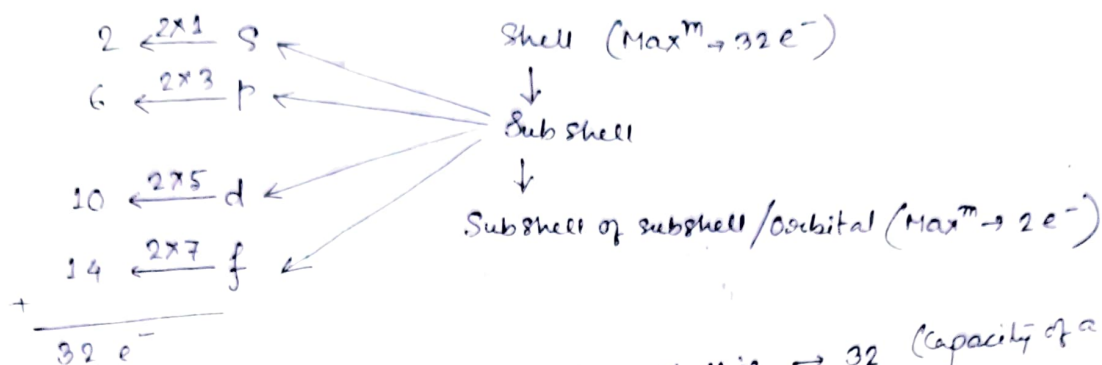 2 ← 2×1 S
6 ← 2×3 p
10 ← 2×5 d
14 ← 2×7 f
+
32 e⁻
Shell (Maxᵐ → 32e⁻)
↓
Sub shell
↓
Subshell of subshell/orbital (Maxᵐ → 2e⁻)
→ 32 (Capacity of a